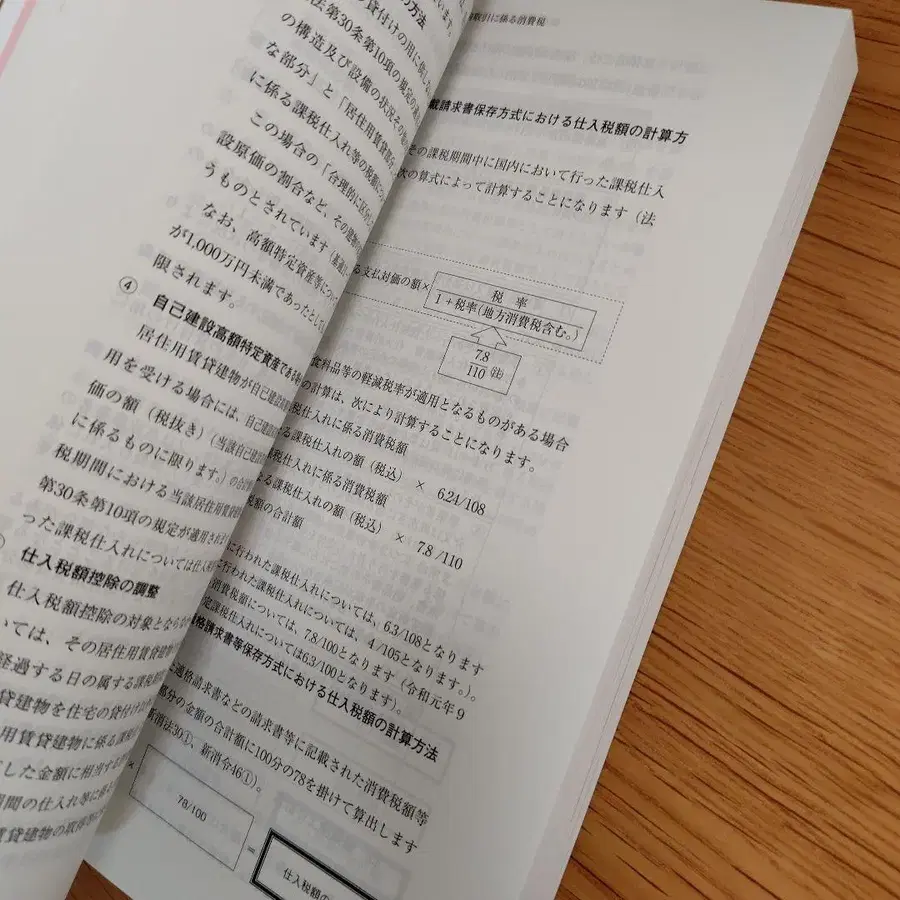 の方法
貸付けの用に供しな
法第30条第10項の規定の適用
の構造及び設備の状況その他の
な部分」と「居住用賃貸部分
に係る課税仕入れ等の税額につ
この場合の「合理的に区分し
設原価の割合など、その建物の
うものとされています（基通
なお、高額特定資産等につい
が1,000万円未満であったとし
限されます。
④ 自己建設高額特定資産である
居住用賃貸建物が自己建設高額
用を受ける場合には、自己建設
価の額（税抜き）（当該自己建設
に係るものに限ります。）の合計
税期間における当該居住用賃貸
第30条第10項の規定が適用され
った課税仕入れについては仕入
仕入税額控除の調整
仕入税額控除の対象とならな
いては、その居住用賃貸建物
経過する日の属する課税期
貸建物を住宅の貸付け以
用賃貸建物に係る課
した金額に相当する
期間の仕入れ等に係
賃貸建物の取得等に
取引に係る消費税
載請求書保存方式における仕入税額の計算方
その課税期間中に国内において行った課税仕入
次の算式によって計算することになります（法
る支払対価の額×
税 率
1＋税率(地方消費税含む。)
7.8
110 (注)
食料品等の軽減税率が適用となるものがある場合
の計算は、次により計算することになります。
税仕入れに係る消費税額
る課税仕入れの額（税込） × 6.24/108
税仕入れに係る消費税額
よる課税仕入れの額（税込） × 7.8/110
税額の合計額
に行われた課税仕入れについては、6.3/108となります
に行われた課税仕入れについては、4/105となります。）。
消費税額については、7.8/100となります（令和元年9
定課税仕入れについては6.3/100となります）。
格請求書等保存方式における仕入税額の計算方法
適格請求書などの請求書等に記載された消費税額等
部分の金額の合計額に100分の78を掛けて算出します
新消法30①、新消令46①）。
× 78/100 ＝ 仕入税額の